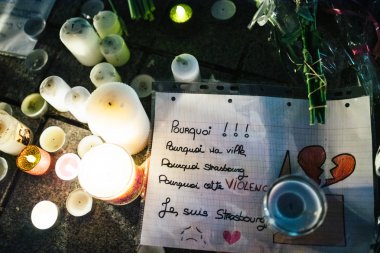 Pourquoi !!!
Pourquoi ma ville
Pourquoi Strasbourg
Pourquoi cette VIOLENC
Je suis Strasbourg